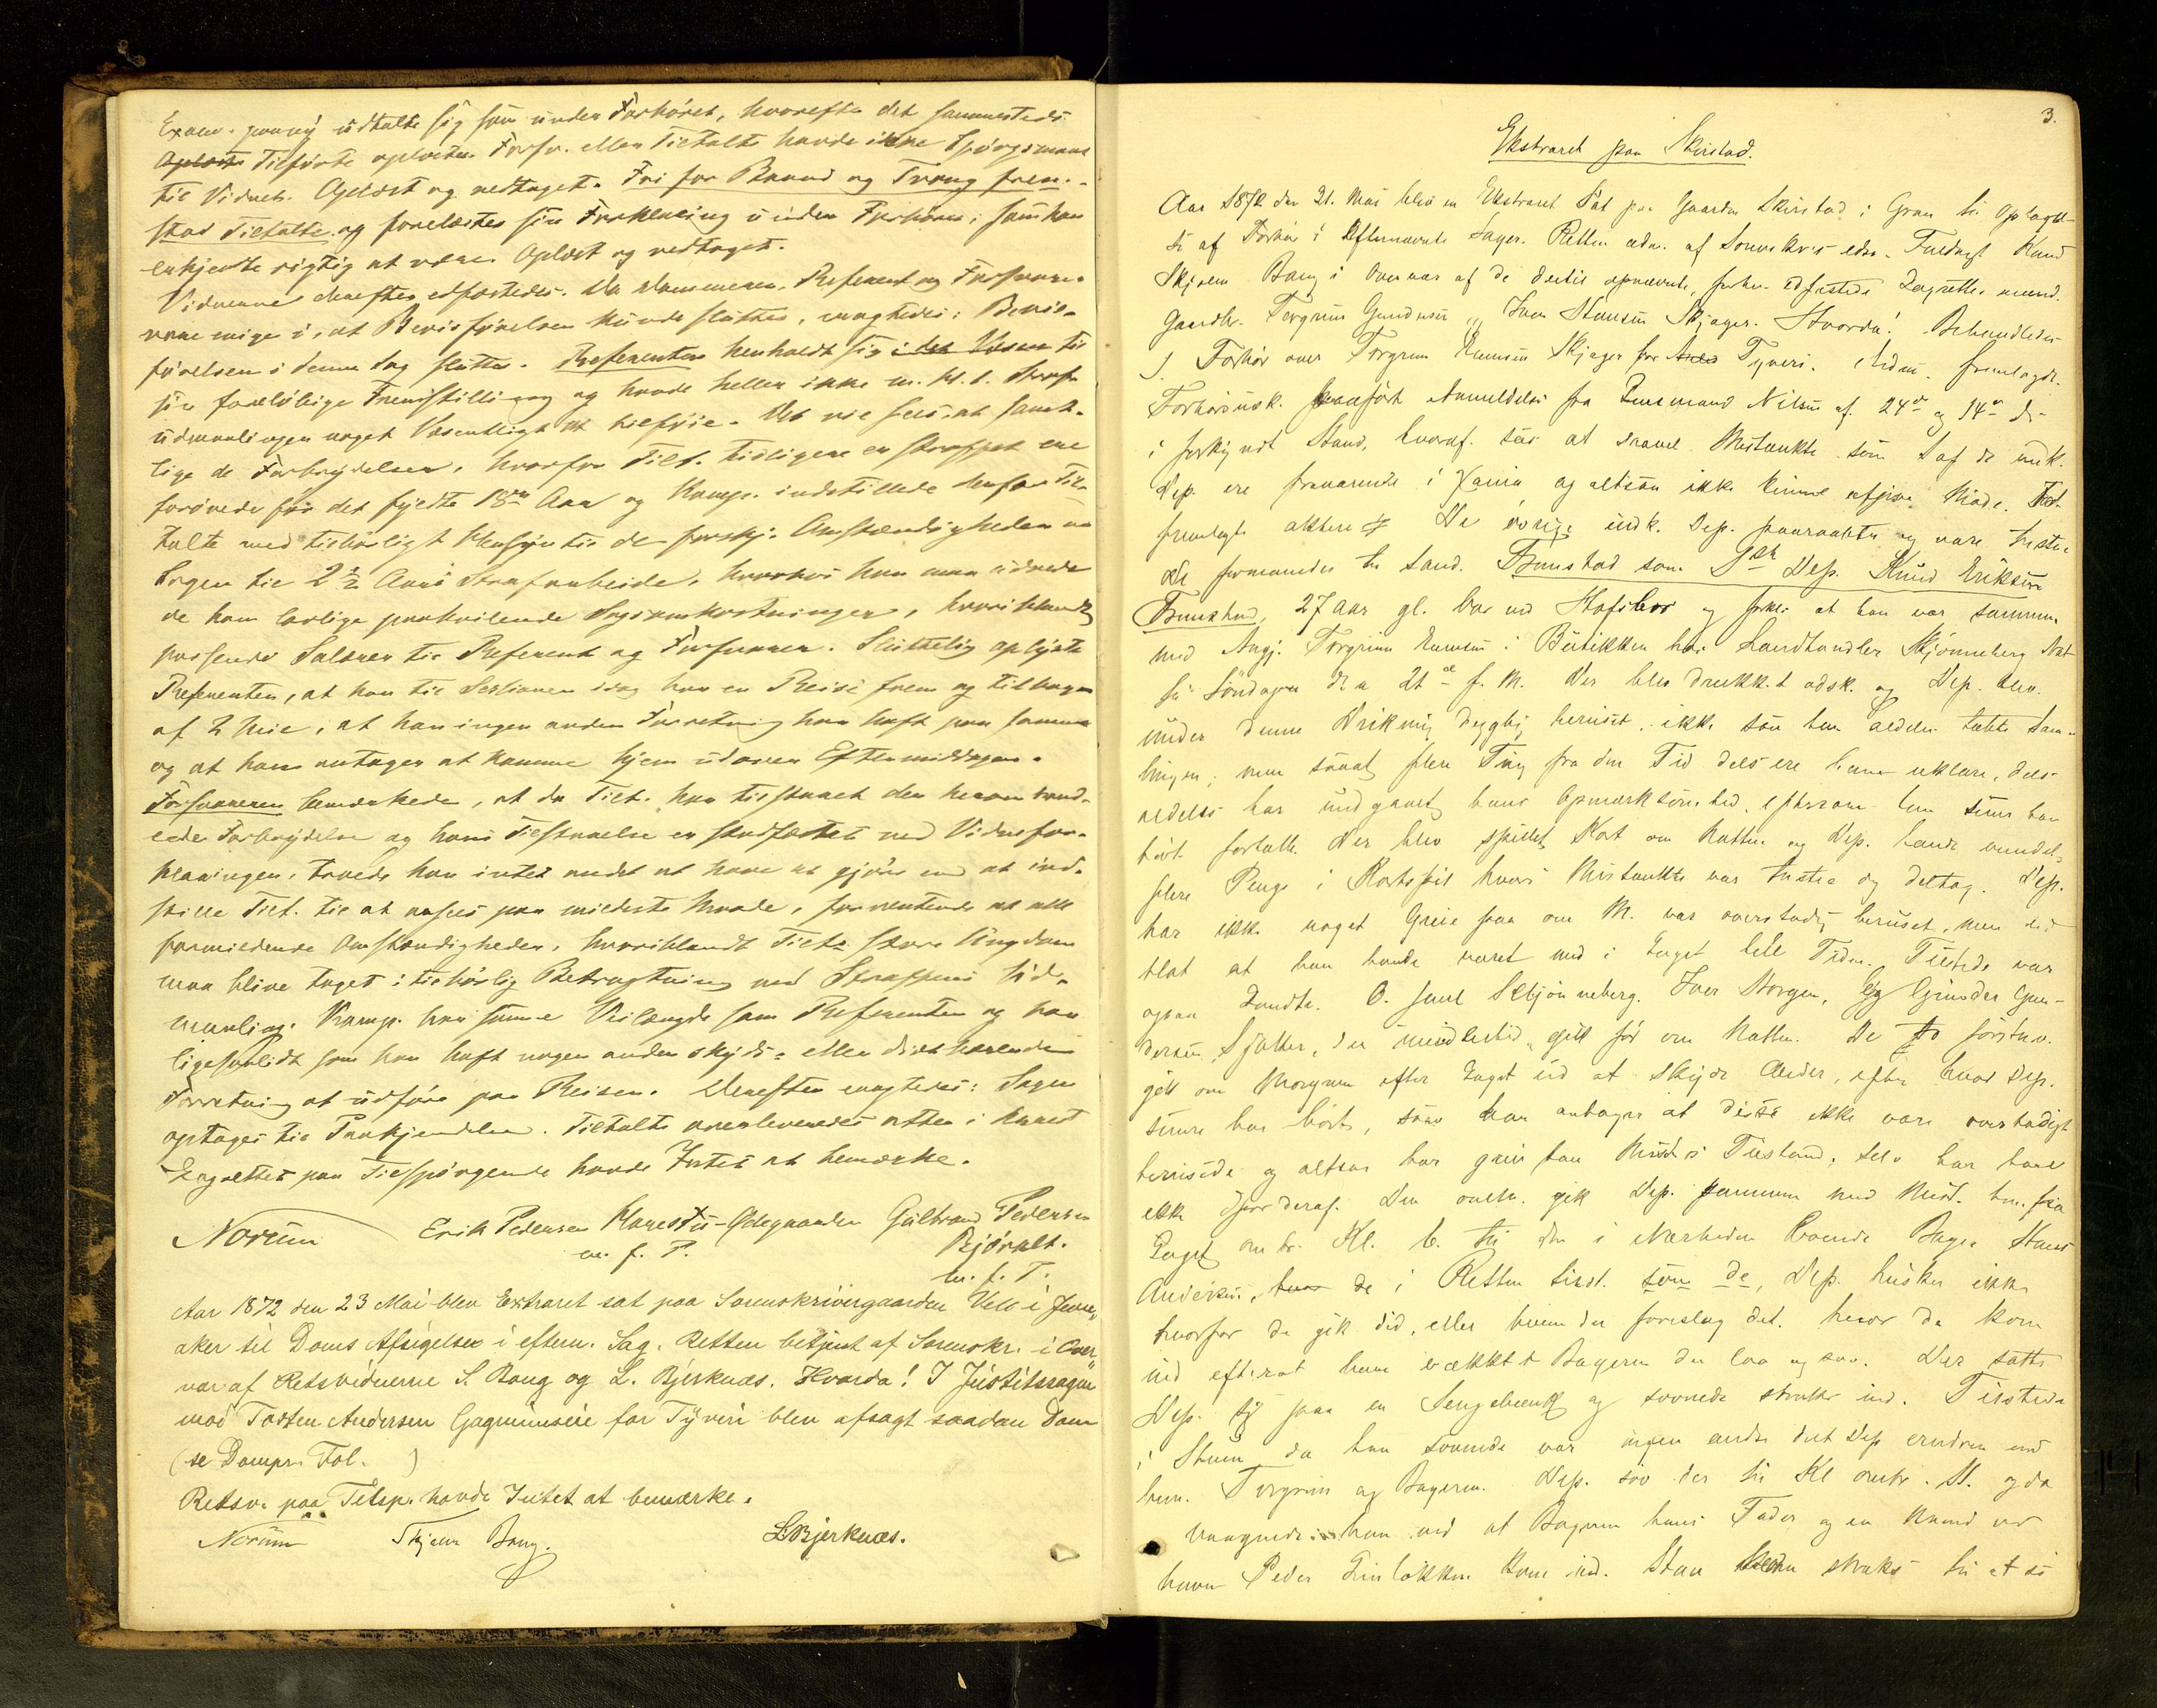 Exam. paany udtalte sig som under Forhöret, hvorefter det sammesteds
Oplæste Tilförte oplæstes. Forsv. eller Tiltalte havde ikke Spörgsmaal
til Vidnet. Oplæst og vedtaget. Fri for Baand og Tvang frem-
stod Tiltalte og forelæstes sin Forklaring under Forhöret, som han
erkjendte rigtig at være. Oplæst og vedtaget.
Vidnerne derefter edfæstedes. Da Dommeren, Referent og Forsvarer
vare enige i, at Bevisförelsen kunde sluttes, eragtedes: Bevis-
förelsen i denne Sag sluttes. Referenten henholdt sig i det Væsen til
sin foreløbige Fremstilling og havde heller ikke m. H. t. Straffe
udmaalingen noget Væsentligt at tilföie. Det vil sees, at samt-
lige de Forbrydelser, hvorfor Tilt. tidligere er straffet ere
forövede för det fyldte 18de Aar og Komp. indstillede derfor Til-
talte med tilbörligt Hensyn til de forskj. Omstændigheder ved
Sagen til 2½ Aars Strafarbeide, hvorhos han maa udrede
de ham lovligen paahvilende Sagsomkostninger, hvoriblandt
passende Salærer til Referent og Forsvarer. Sluttelig oplyste
Referenten, at han til Sessionen idag har en Reise frem og tilbage
af 2 Mile, at han ingen anden Forretning har havt paa samme
og at han antager at komme hjem udover Eftermiddagen.
Forsvareren bemærkede, at da Tilt. har tilstaaet den heromhand-
lede Forbrydelse og hans Tilstaaelse er stadfæstet ved Vidnefor-
klaringen, troede han intet andet at have at gjöre end at ind-
stille Tilt. til at ansees paa mildeste Maade, forventende at alle
formildende Omstændigheder, hvoriblandt Tilts store Ungdom
maa blive taget i tilbörlig Betragtning ved Straffens Ud-
maaling. Komp. har samme Veilængde som Referenten og har
ligesaalidt som han havt nogen anden skyds- eller diæthavende
Forretning at udföre paa Reisen. Derefter eragtedes: Sagen
optages til Paakjendelse. Tiltalte overleveredes atter i Arrest
Lagrettet paa Tilspörgende havde Intet at bemærke.
Norum Erik Pedersen Ødegaarden Gulbrand Pedersen
m. f. P. Björnlt.
m. f. P.
Aar 1872 den 23 Mai blev Extraret sat paa Sorenskrivergaarden Velo i Jevn-
aker til Doms Afsigelse i eftern. Sag. Retten betjent af Sorenskr. i Over-
vær af Retsvidnerne S. Bang og L. Bjerknæs. Hvorda! I Justitssagen
mod Torsten Andersen Gagnumseie for Tyveri blev afsagt saadan Dom
(se Dompr. Fol. )
Retsv. paa Tilsp. havde Intet at bemærke.
Norum Skjelm Bang. L. Bjerknæs.
3.
Ekstraret paa Skirstad.
Aar 1872 den 21. Mai blev en Ekstraret sat paa Gaarden Skirstad i Gran til Optagel-
se af Forhör i Efternævnte Sager. Retten adm. af Sorenskr.s edsv. Fuldmægt. Knud
Skjelm Bang i Overvær af de dertil opnævnte, forhen edfæstede Lagrettesmænd.
Gaardbr. Torgrim Gundersen, Iver Hansen Skjager. Hvorda! Behandledes
1. Forhör over Torgrim Skjager for Tyveri. Adm. fremlagde
Forhörsudsk. paaført Anmeldelse fra Lensmand Nilsen af 24de og 14de ds
i forkyndt Stand, hvoraf sees at saavel Mistænkte som 1 af de indk.
Dep. ere fraværende i Xania og altsaa ikke kunne afgive Möde. Det
fremlagte akteres. De övrige indk. Dep. paaraabtes og vare tilstede
De formanedes til Sand. Fremstod som 1ste Dep. Knud Eriksen
27 Aar gl. bor ved Hofsbro og forkl. at han var sammen
med Angj. Torgrim i Butikken hos Landhandler Skjønneberg Nat
til Söndagen den 21de f. M. Der blev drukket adsk. og Dep. blev
under denne Drikning dygtig beruset, ikke saa han aldeles tabte Sam-
lingen, men saavidt flere Ting fra den Tid dels ere ham uklare, dels
aldeles har undgaaet hans Opmærksomhed, eftersom han senere har
hört fortalt. Der blev spillet Kort om Natten og Dep. havde vundet
flere Penge i Kortspil hvori Mistænkte var tilstede og deltog. Dep.
har ikke noget Greie paa om M. var overstadig beruset, men ved
blot at han havde været med i Laget hele Tiden. Tilstede var
ogsaa Landh. O. Juul Skjönneberg, Iver Horgen, og Gunder Gun-
dersen Sjøtter, der imidlertid gik för om Natten. De to förstnv.
gik om Morgenen efter Laget ud at skyde Ænder, efter hvad Dep.
senere har hört, saa han antager at disse ikke vare overstadigt
berusede og altsaa har greie paa Mist.s Tilstand, selv har han
ikke Spor deraf. Den gik Dep. sammen med Mist. bort fra
Laget omtr. Kl. 6 til den i Nærheden boende Bager Hans
Andersen, hvor de i Retten tilst. som de, Dep. husker ikke
hvorfor de gik did, eller hvem der foreslog det, hvor de kom
ind efterat have vækket Bageren der laa og sov. Der satte
Dep. sig paa en Sengebænk og sovnede straks ind. Tilstede
i Stuen da han sovnede var ingen andre det Dep. erindrer end
ham, Torgrim og Bageren. Dep. sov der til Kl. omtr. 11. og da
vaagnede han ved at Bageren hans Fader og en Mand ved
Navn Peder Linløkken kom ind. Han straks til at se